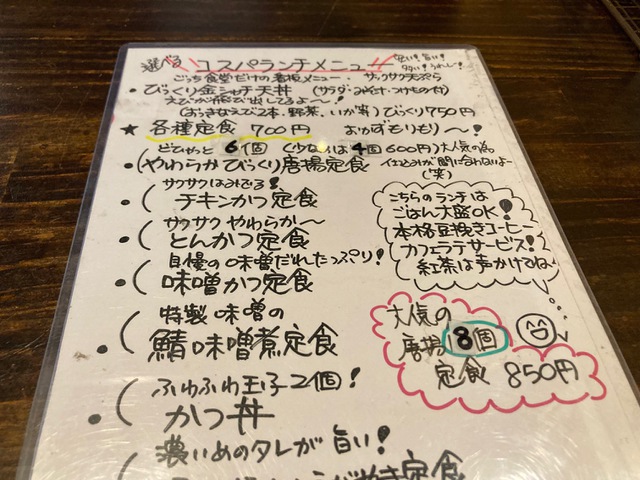 選べる コスパランチメニュー
安い!旨い!
ごっち食堂だけの看板メニュー・サクサク天ぷら
・びっくり金シャチ天丼 (サラダ・みそ汁・つけもの付)
えびが飛び出してるよ〜!
(おっきなえび2本・野菜、いか等)びっくり750円
★各種定食 700円 おかずもりもり〜!
どどやっと 6個 (少なめは4個600円)大人気の為
・(やわらかびっくり唐揚定食 仕込みが間に合わねよ〜
(笑)
サクサクはみでる!
・( チキンかつ定食
サクサク やわらか〜
・( とんかつ定食
自慢の味噌だれたっぷり!
・( 味噌かつ定食
特製 味噌の
・( 鯖味噌煮定食
ふわふわ玉子2個!
・( かつ丼
濃いめのタレが旨い!
定食
こちらのランチは
ごはん大盛OK!
本格豆挽きコーヒー
カフェラテサービス!
紅茶は声かけてね
大人気の
唐揚 8個
定食 850円